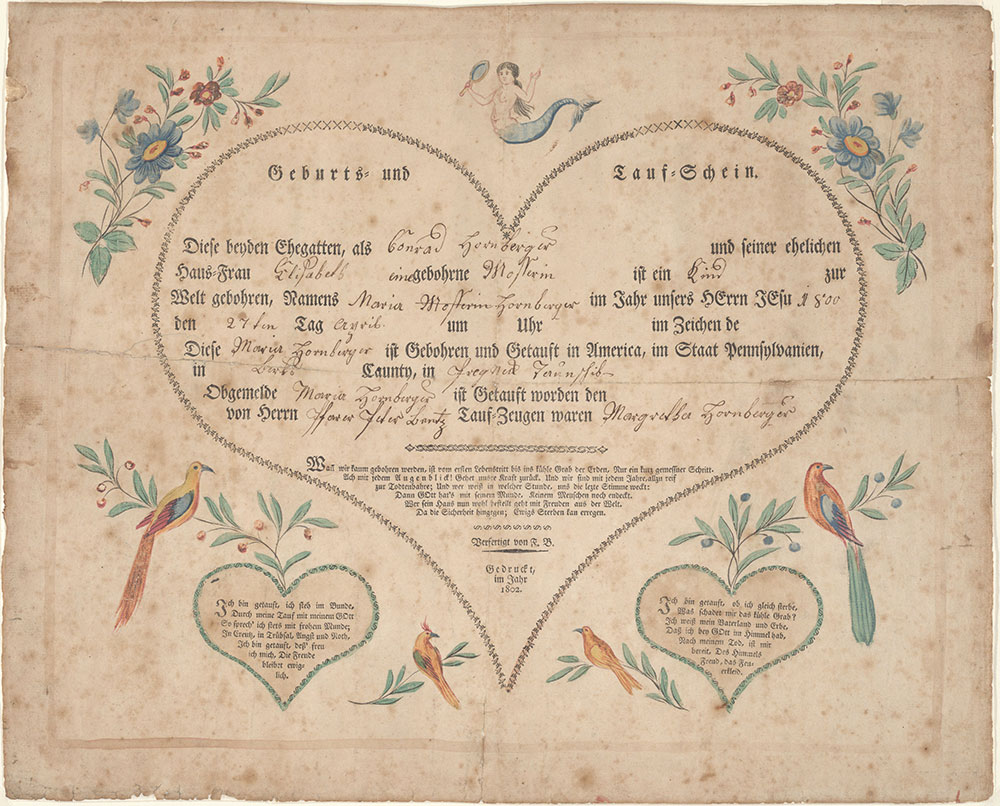 Geburts- und Tauf-Schein.
Diese beyden Ehegatten, als Conrad Hornberger und seiner ehelichen
Haus-Frau Elisabeth eine gebohrne Mosserin ist ein Kind zur
Welt gebohren, Namens Maria Mosserin Hornberger im Jahr unsers HErrn JEsu 1800
den 27ten Tag Aprill um Uhr im Zeichen de
Diese Maria Hornberger ist Gebohren und Getauft in America, im Staat Pennsylvanien,
in Berks Caunty, in Taunship
Obgemelde Maria Hornberger ist Getauft worden den
von Herrn Pfarer Peter Bentz Tauf-Zeugen waren Margretha Hornberger
Wañ wir kaum gebohren werden, ist vom ersten Lebenstritt bis ins kühle Grab der Erden, Nur ein kurz gemessner Schritt.
Ach mit jedem Augenblick! Gehet unsre Kraft zurück. Und wir sind mit jedem Jahre, allzu reif
zur Todtenbahre; Und wer weiß in welcher Stunde, uns die lezte Stimme weckt:
Dann GOtt hat's mit seinem Munde, Keinem Menschen noch endeckt.
Wer sein Haus nun wohl bestellt geht mit Freuden aus der Welt.
Da die Sicherheit hingegen; Ewigs Sterben kan erregen.
Verfertigt von F. B.
Gedruckt,
im Jahr
1802.
Ich bin getauft, ich steh im Bunde,
Durch meine Tauf mit meinem GOtt
So sprech' ich stets mit frohem Munde;
In Creutz, in Trübsal, Angst und Noth,
Ich bin getauft, deß' freu
ich mich, Die Freude
bleibet ewig-
lich.
Ich bin getauft, ob ich gleich sterbe,
Was schadet mir das kühle Grab?
Ich weiß mein Vaterland und Erbe,
Daß ich bey GOtt im Himmel hab,
Nach meinem Tod, ist mir
bereit, Des Himmels
Freud, das Fey-
erkleid.